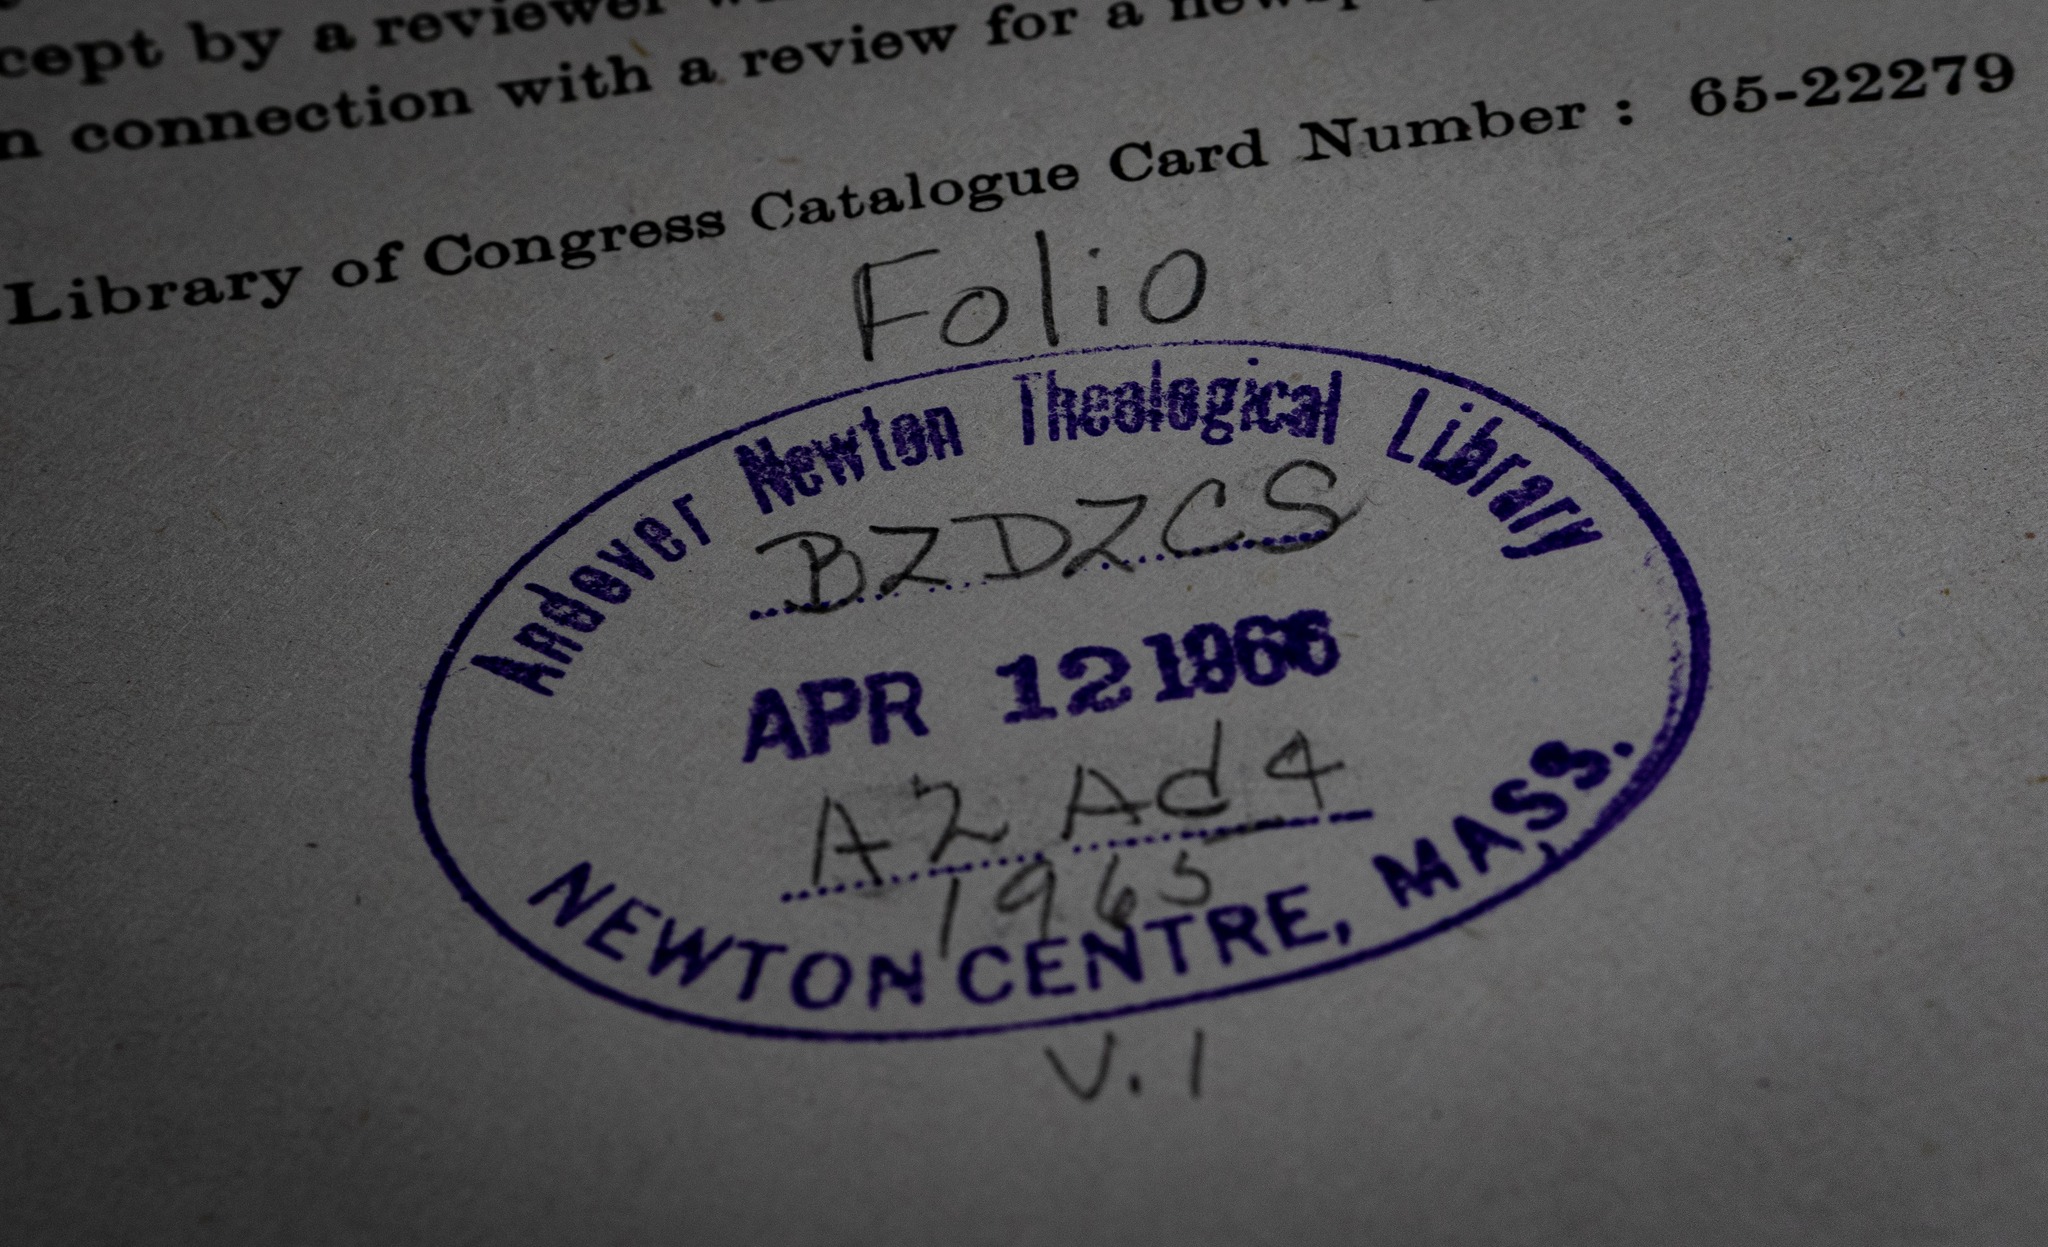 cept by a reviewer
n connection with a review for a
Library of Congress Catalogue Card Number : 65-22279
Folio
Andover Newton Theological Library
BZDZCS
APR 12 1966
A2 Ad4
1965
NEWTON CENTRE, MASS.
V.1